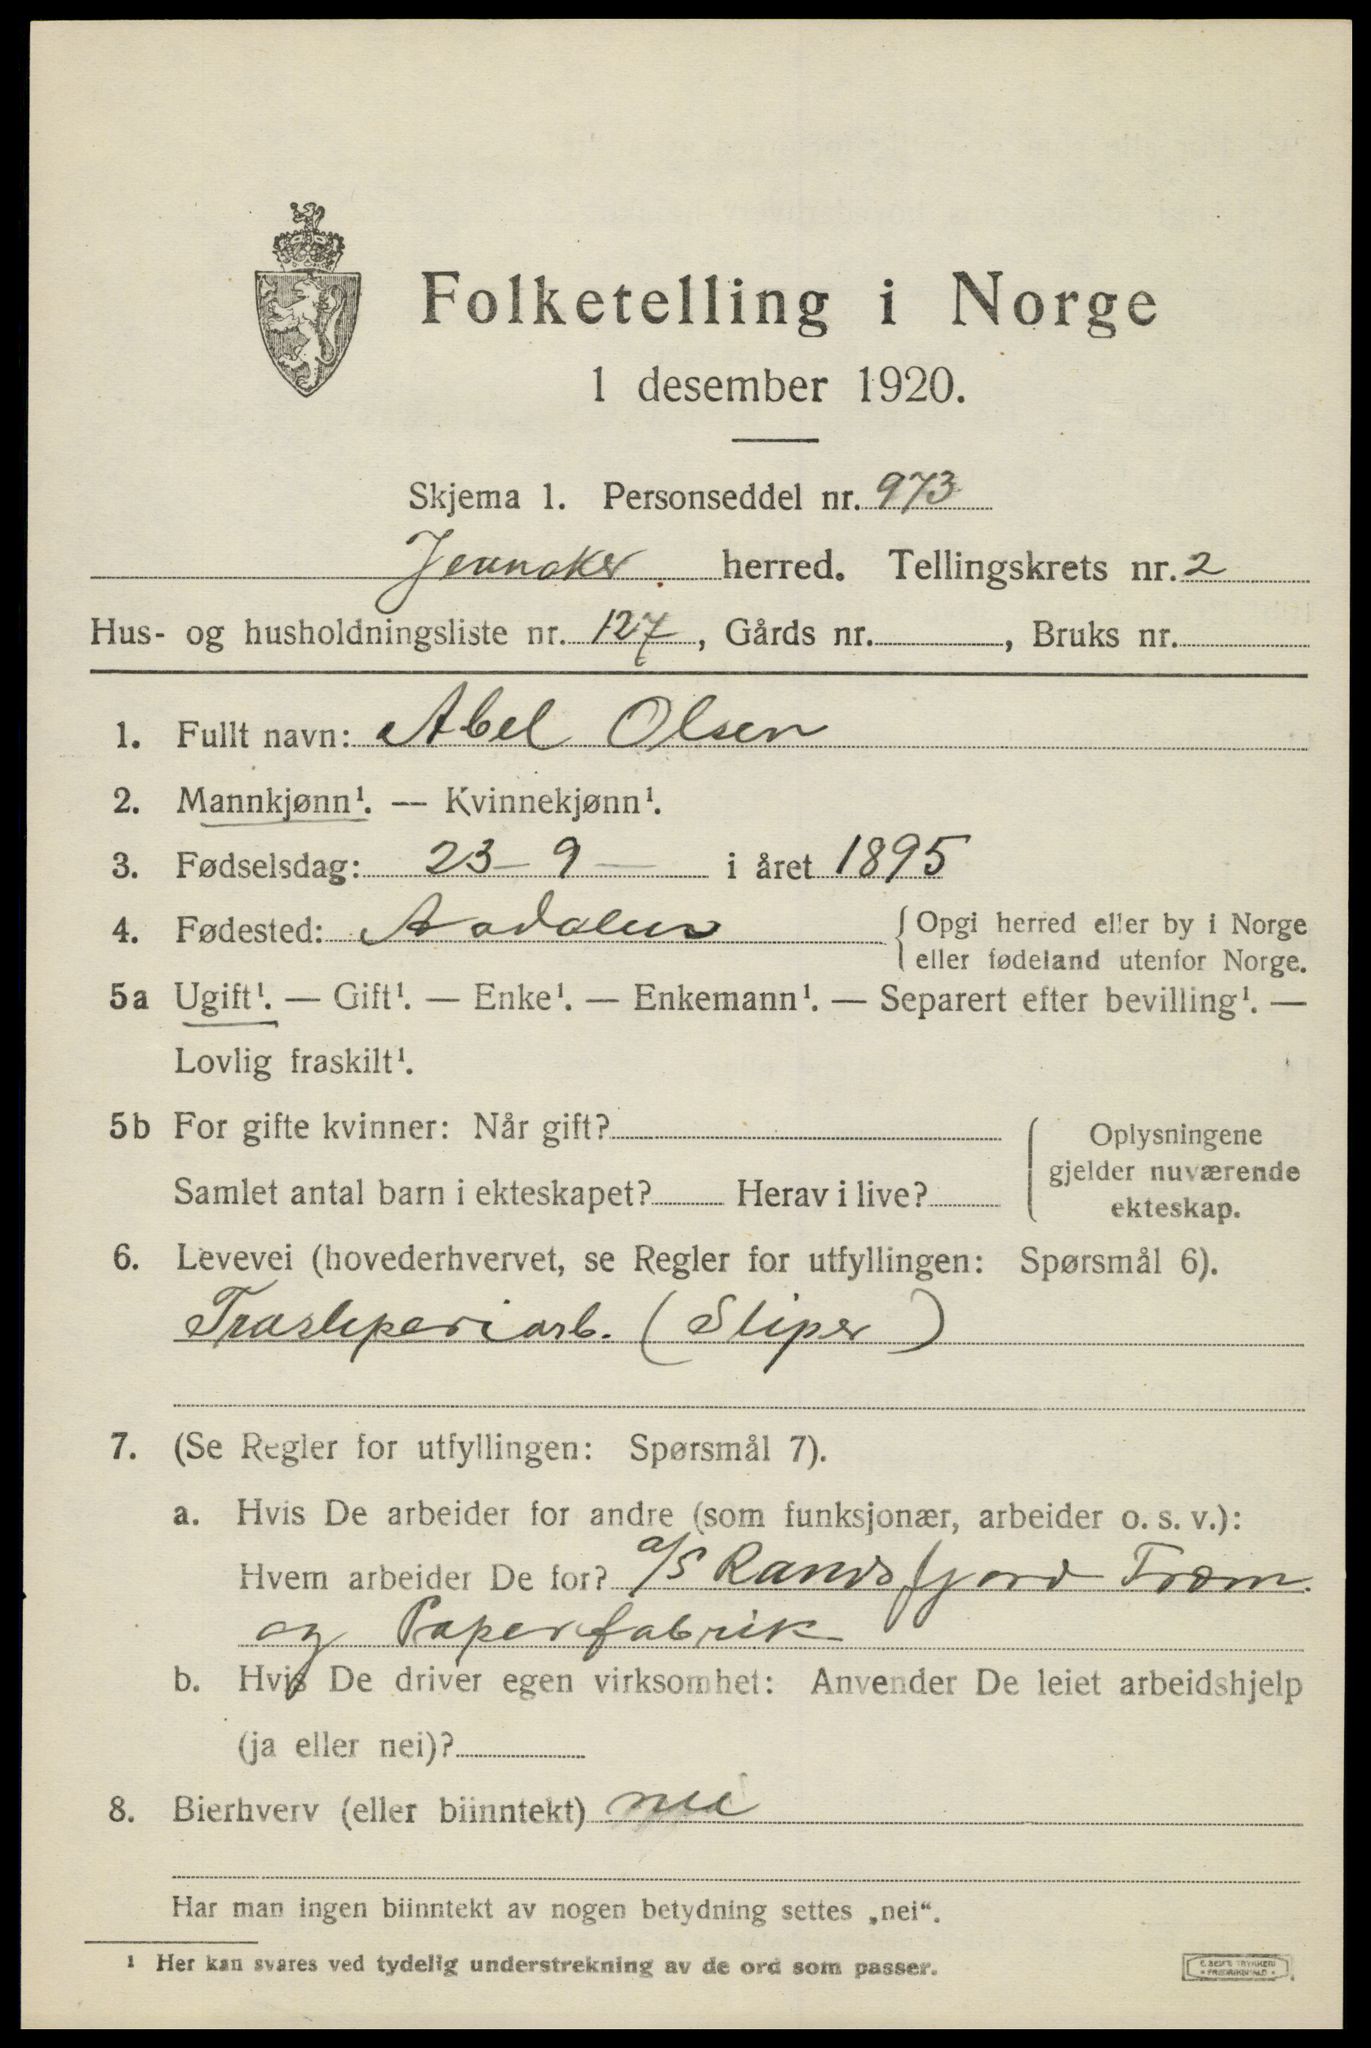 Folketelling i Norge
1 desember 1920.
Skjema 1. Personseddel nr. 973
Jevnaker herred. Tellingskrets nr. 2
Hus- og husholdningsliste nr. 127, Gårds nr. , Bruks nr.
1. Fullt navn: Abel Olsen
2. Mannkjønn¹. — Kvinnekjønn¹.
3. Fødselsdag: 23 – 9 — i året 1895
4. Fødested: Aadalen { Opgi herred eller by i Norge
eller fødeland utenfor Norge.
5a Ugift¹. — Gift¹. — Enke¹. — Enkemann¹. — Separert efter bevilling¹. —
Lovlig fraskilt¹.
5b For gifte kvinner: Når gift?
Samlet antal barn i ekteskapet? Herav i live?
Oplysningene
gjelder nuværende
ekteskap.
6. Levevei (hovederhvervet, se Regler for utfyllingen: Spørsmål 6).
Trasliperiarb. (Sliper)
7. (Se Regler for utfyllingen: Spørsmål 7).
a. Hvis De arbeider for andre (som funksjonær, arbeider o. s. v.):
Hvem arbeider De for? a/s Randsfjord Træm.
og Paperfabrik
b. Hvis De driver egen virksomhet: Anvender De leiet arbeidshjelp
(ja eller nei)?
8. Bierhverv (eller biinntekt) nei
Har man ingen biinntekt av nogen betydning settes „nei“.
¹ Her kan svares ved tydelig understrekning av de ord som passer.